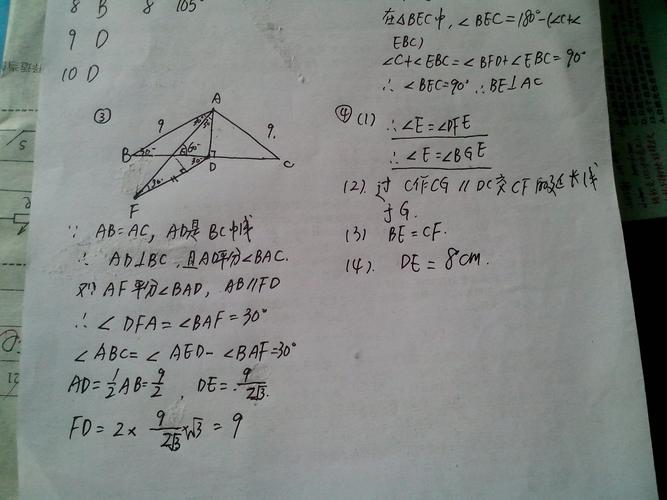 8 B 8 105°
9 D
10 D
③
A
9
9.
30°
30°
B
30°
E
60°
30°
D
C
30°
F
∵ AB=AC, AD是BC中线
∴ AD⊥BC, 且AD平分∠BAC.
又∵ AF平分∠BAD, AB∥FD
∴ ∠DFA=∠BAF=30°
∠ABC=∠AED-∠BAF=30°
AD=1/2AB=9/2, DE=9/2√3.
FD=2×9/2√3×√3=9
在△BEC中, ∠BEC=180°-(∠C+∠
EBC)
∠C+∠EBC=∠BFD+∠EBC=90°
∴ ∠BEC=90° ∴BE⊥AC
④(1) ∴∠E=∠DFE
∴∠E=∠BGE
(2). 过C作CG∥DC交CF的延长线
于G.
(3) BE=CF.
(4). DE=8cm.